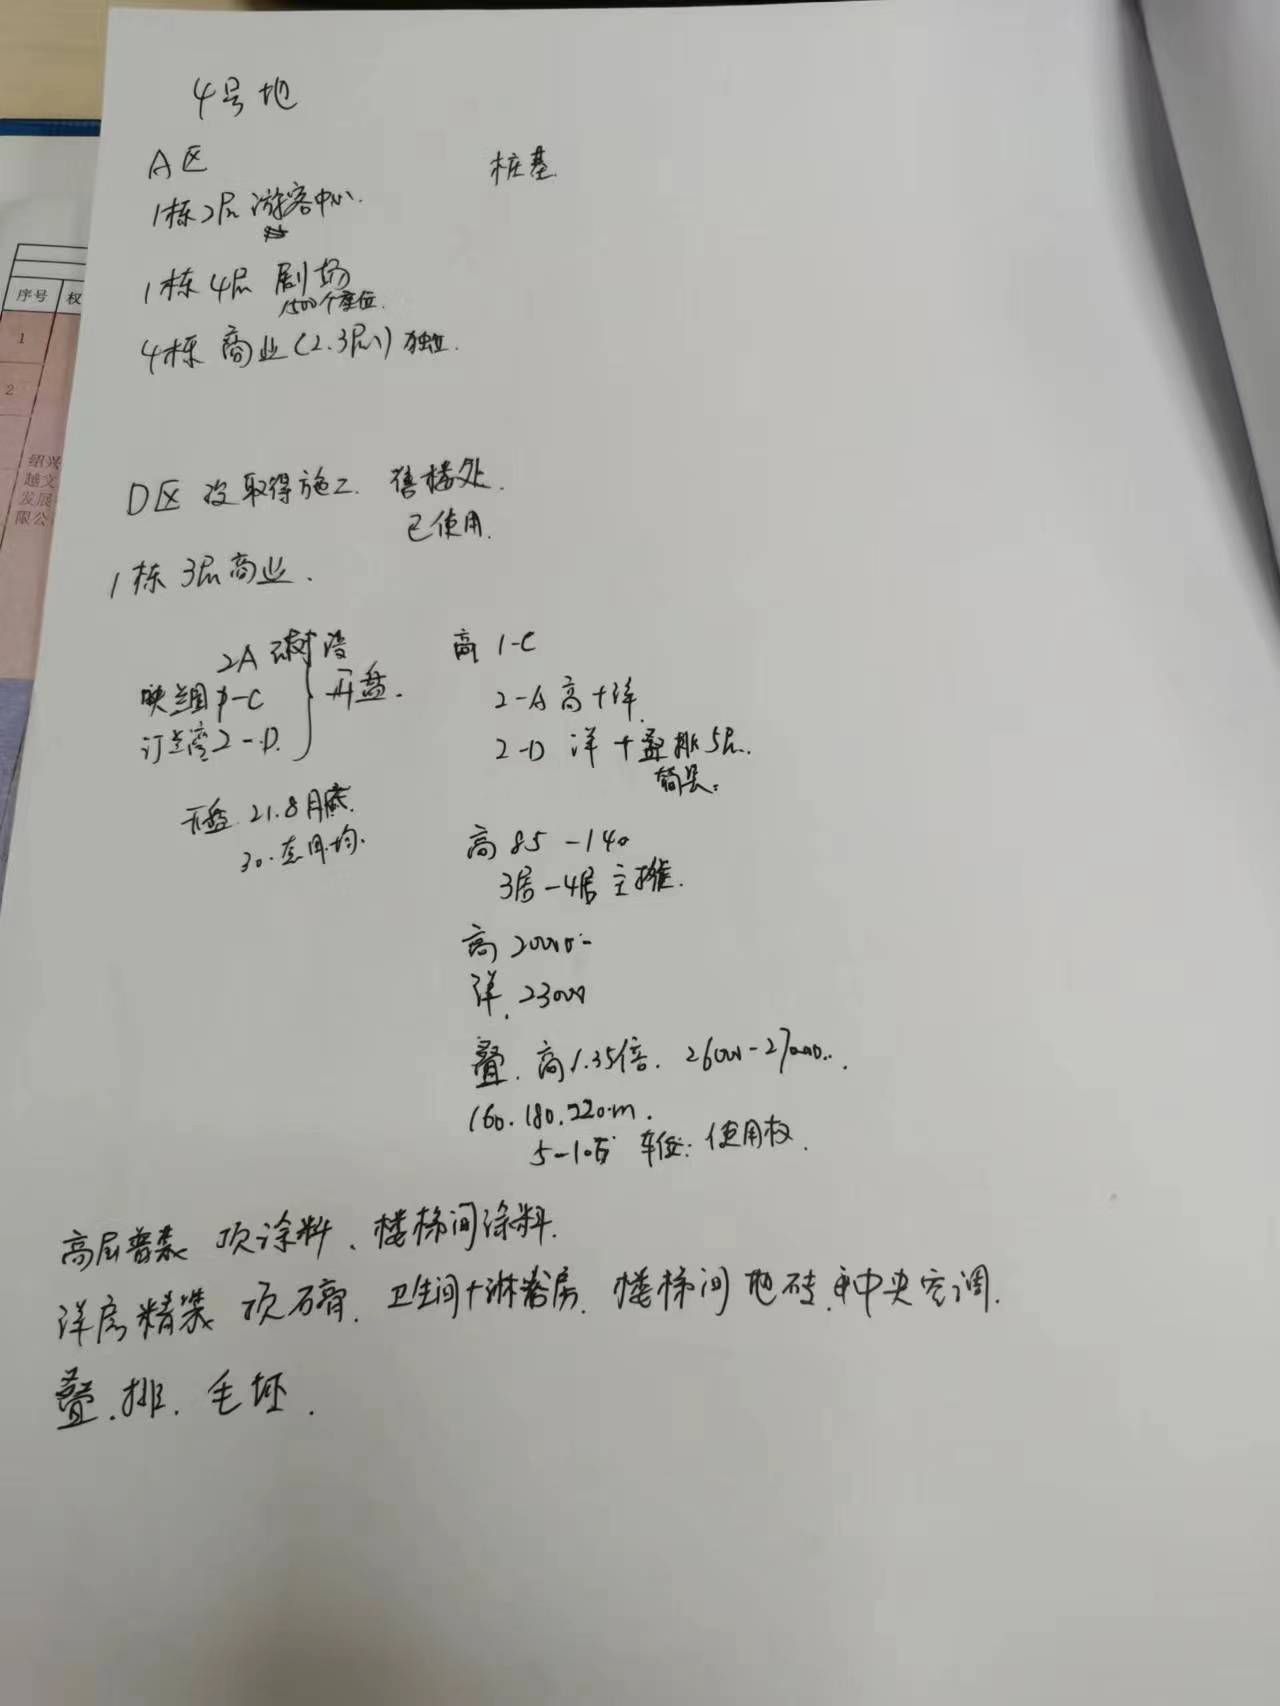 4号地
A区 桩基
1栋2层 游客中心.
1栋4层 剧场
1500个座位.
4栋 商业(2.3层) 独立.
序号 权
1
2
绍兴
越文
发展
限公
D区 没取得施工. 售楼处.
已使用.
1栋 3层商业.
2A 没
映兰园 1-C
汀兰湾 2-D.
开盘.
高 1-C
2-A 高+洋.
2-D 洋+叠排5层.
开盘 21.8月底.
30.套月均.
高 85-140
3房-4房 主推.
高 20000-
洋. 23000
叠. 高1.35倍. 26000-27000..
160.180.220.m.
5-10万 车位: 使用权.
高层普装 顶涂料、楼梯间涂料.
洋房精装 顶石膏. 卫生间+淋浴房. 楼梯间地砖. 中央空调.
叠.排. 毛坯.